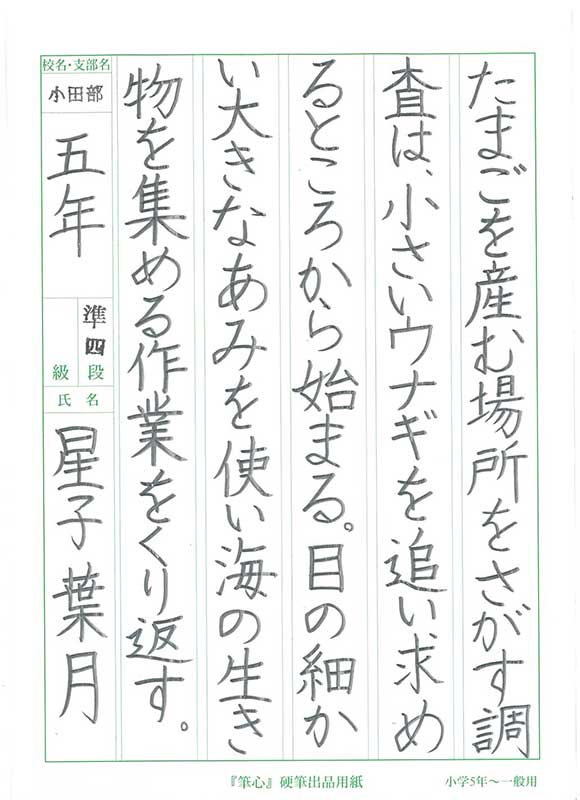 たまごを産む場所をさがす調
査は、小さいウナギを追い求め
るところから始まる。目の細か
い大きなあみを使い海の生き
物を集める作業をくり返す。
校名・支部名
小田部
五年
準四段
級
氏名
星子葉月
『筆心』硬筆出品用紙
小学5年～一般用